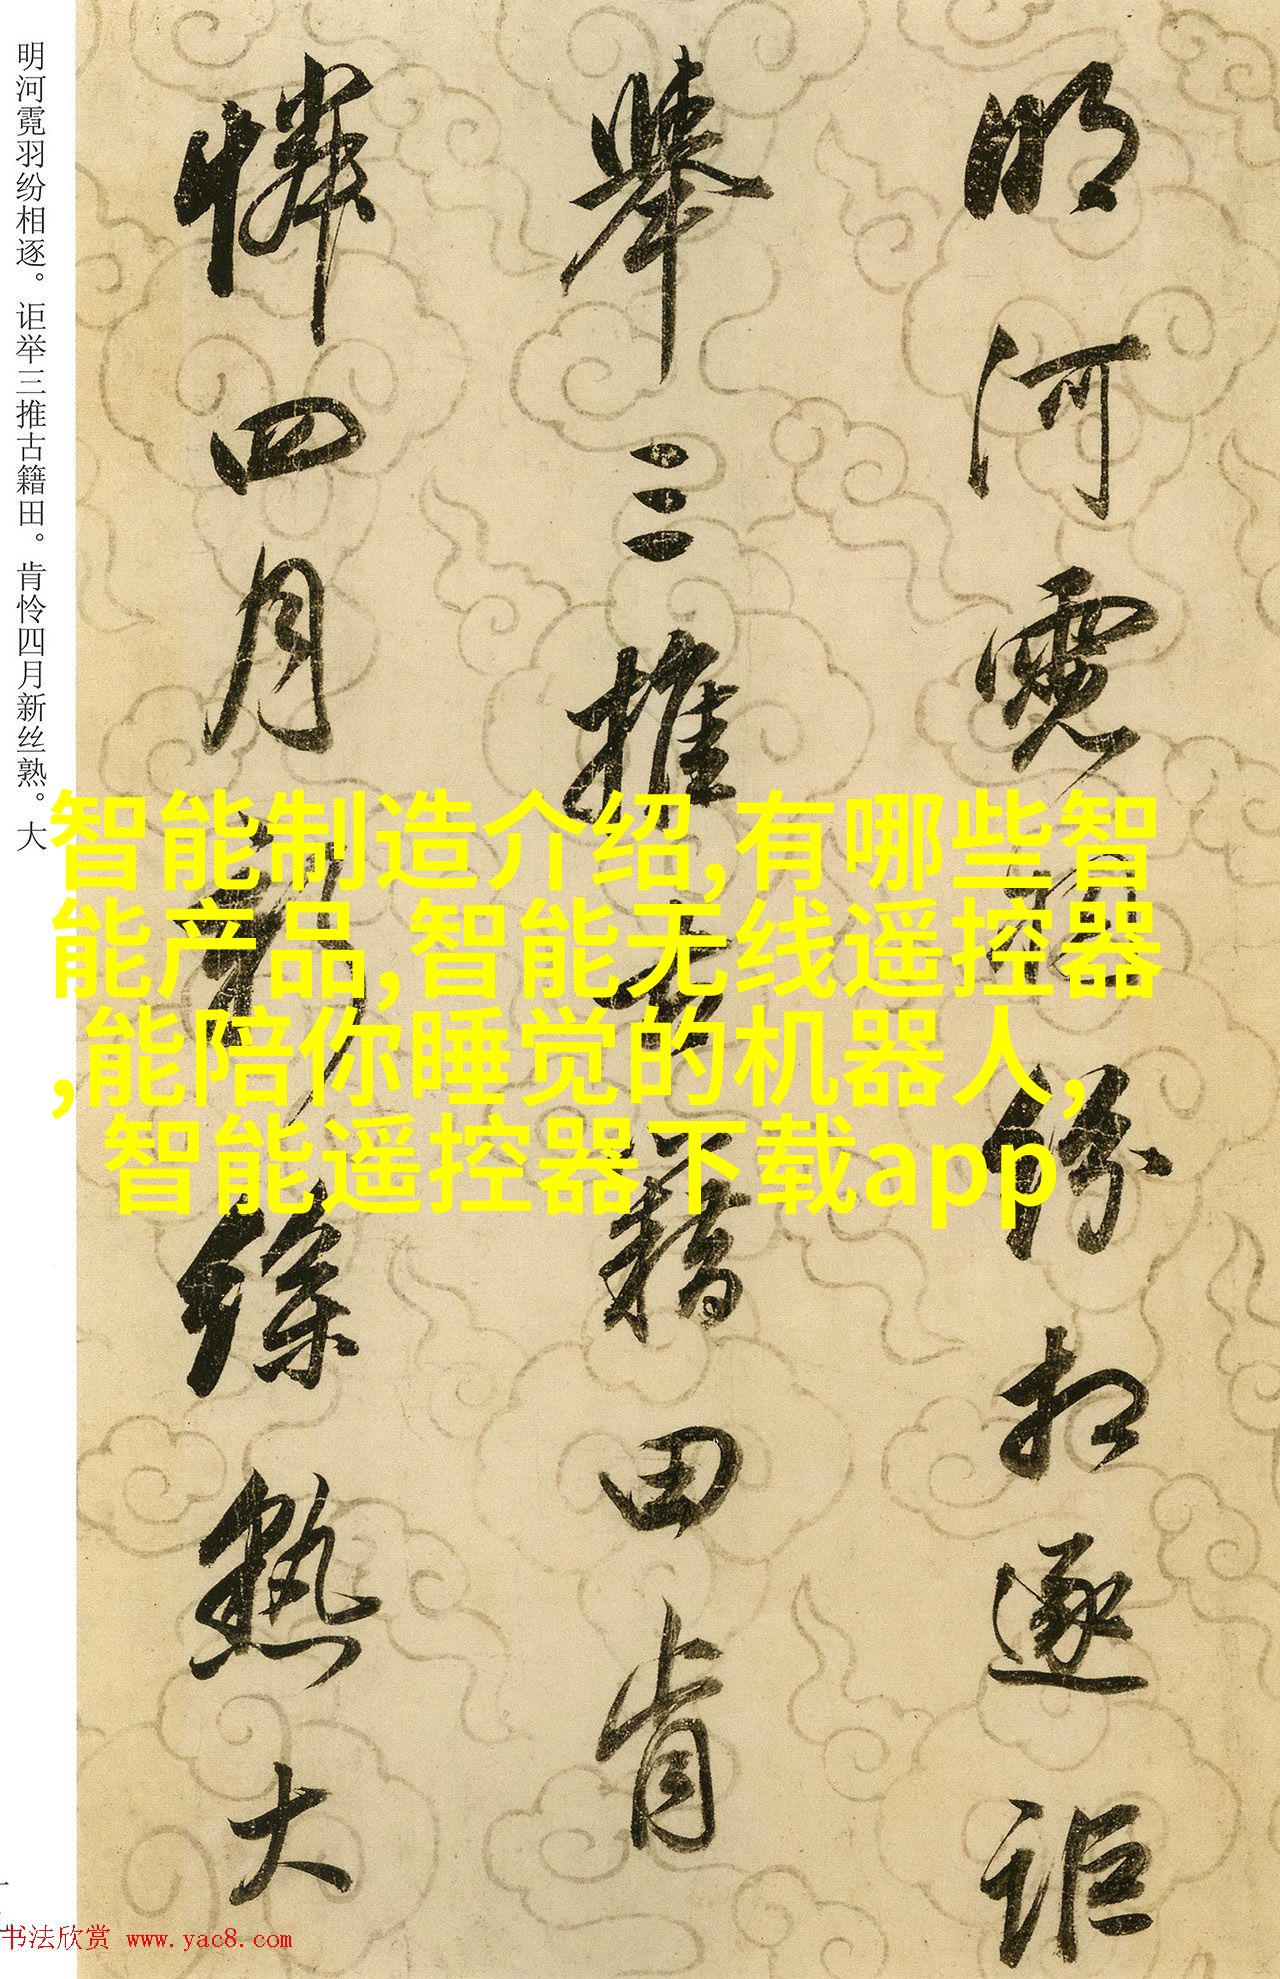 明河霓羽纷相逐。讵举三推古籍田。肯怜四月新丝熟。大
明河霓羽纷相逐讵
舉三推古籍田肯
憐四月新絲熟大
智能制造介绍,有哪些智
能产品,智能无线遥控器
,能陪你睡觉的机器人,
智能遥控器下载app
书法欣赏 www.yac8.com